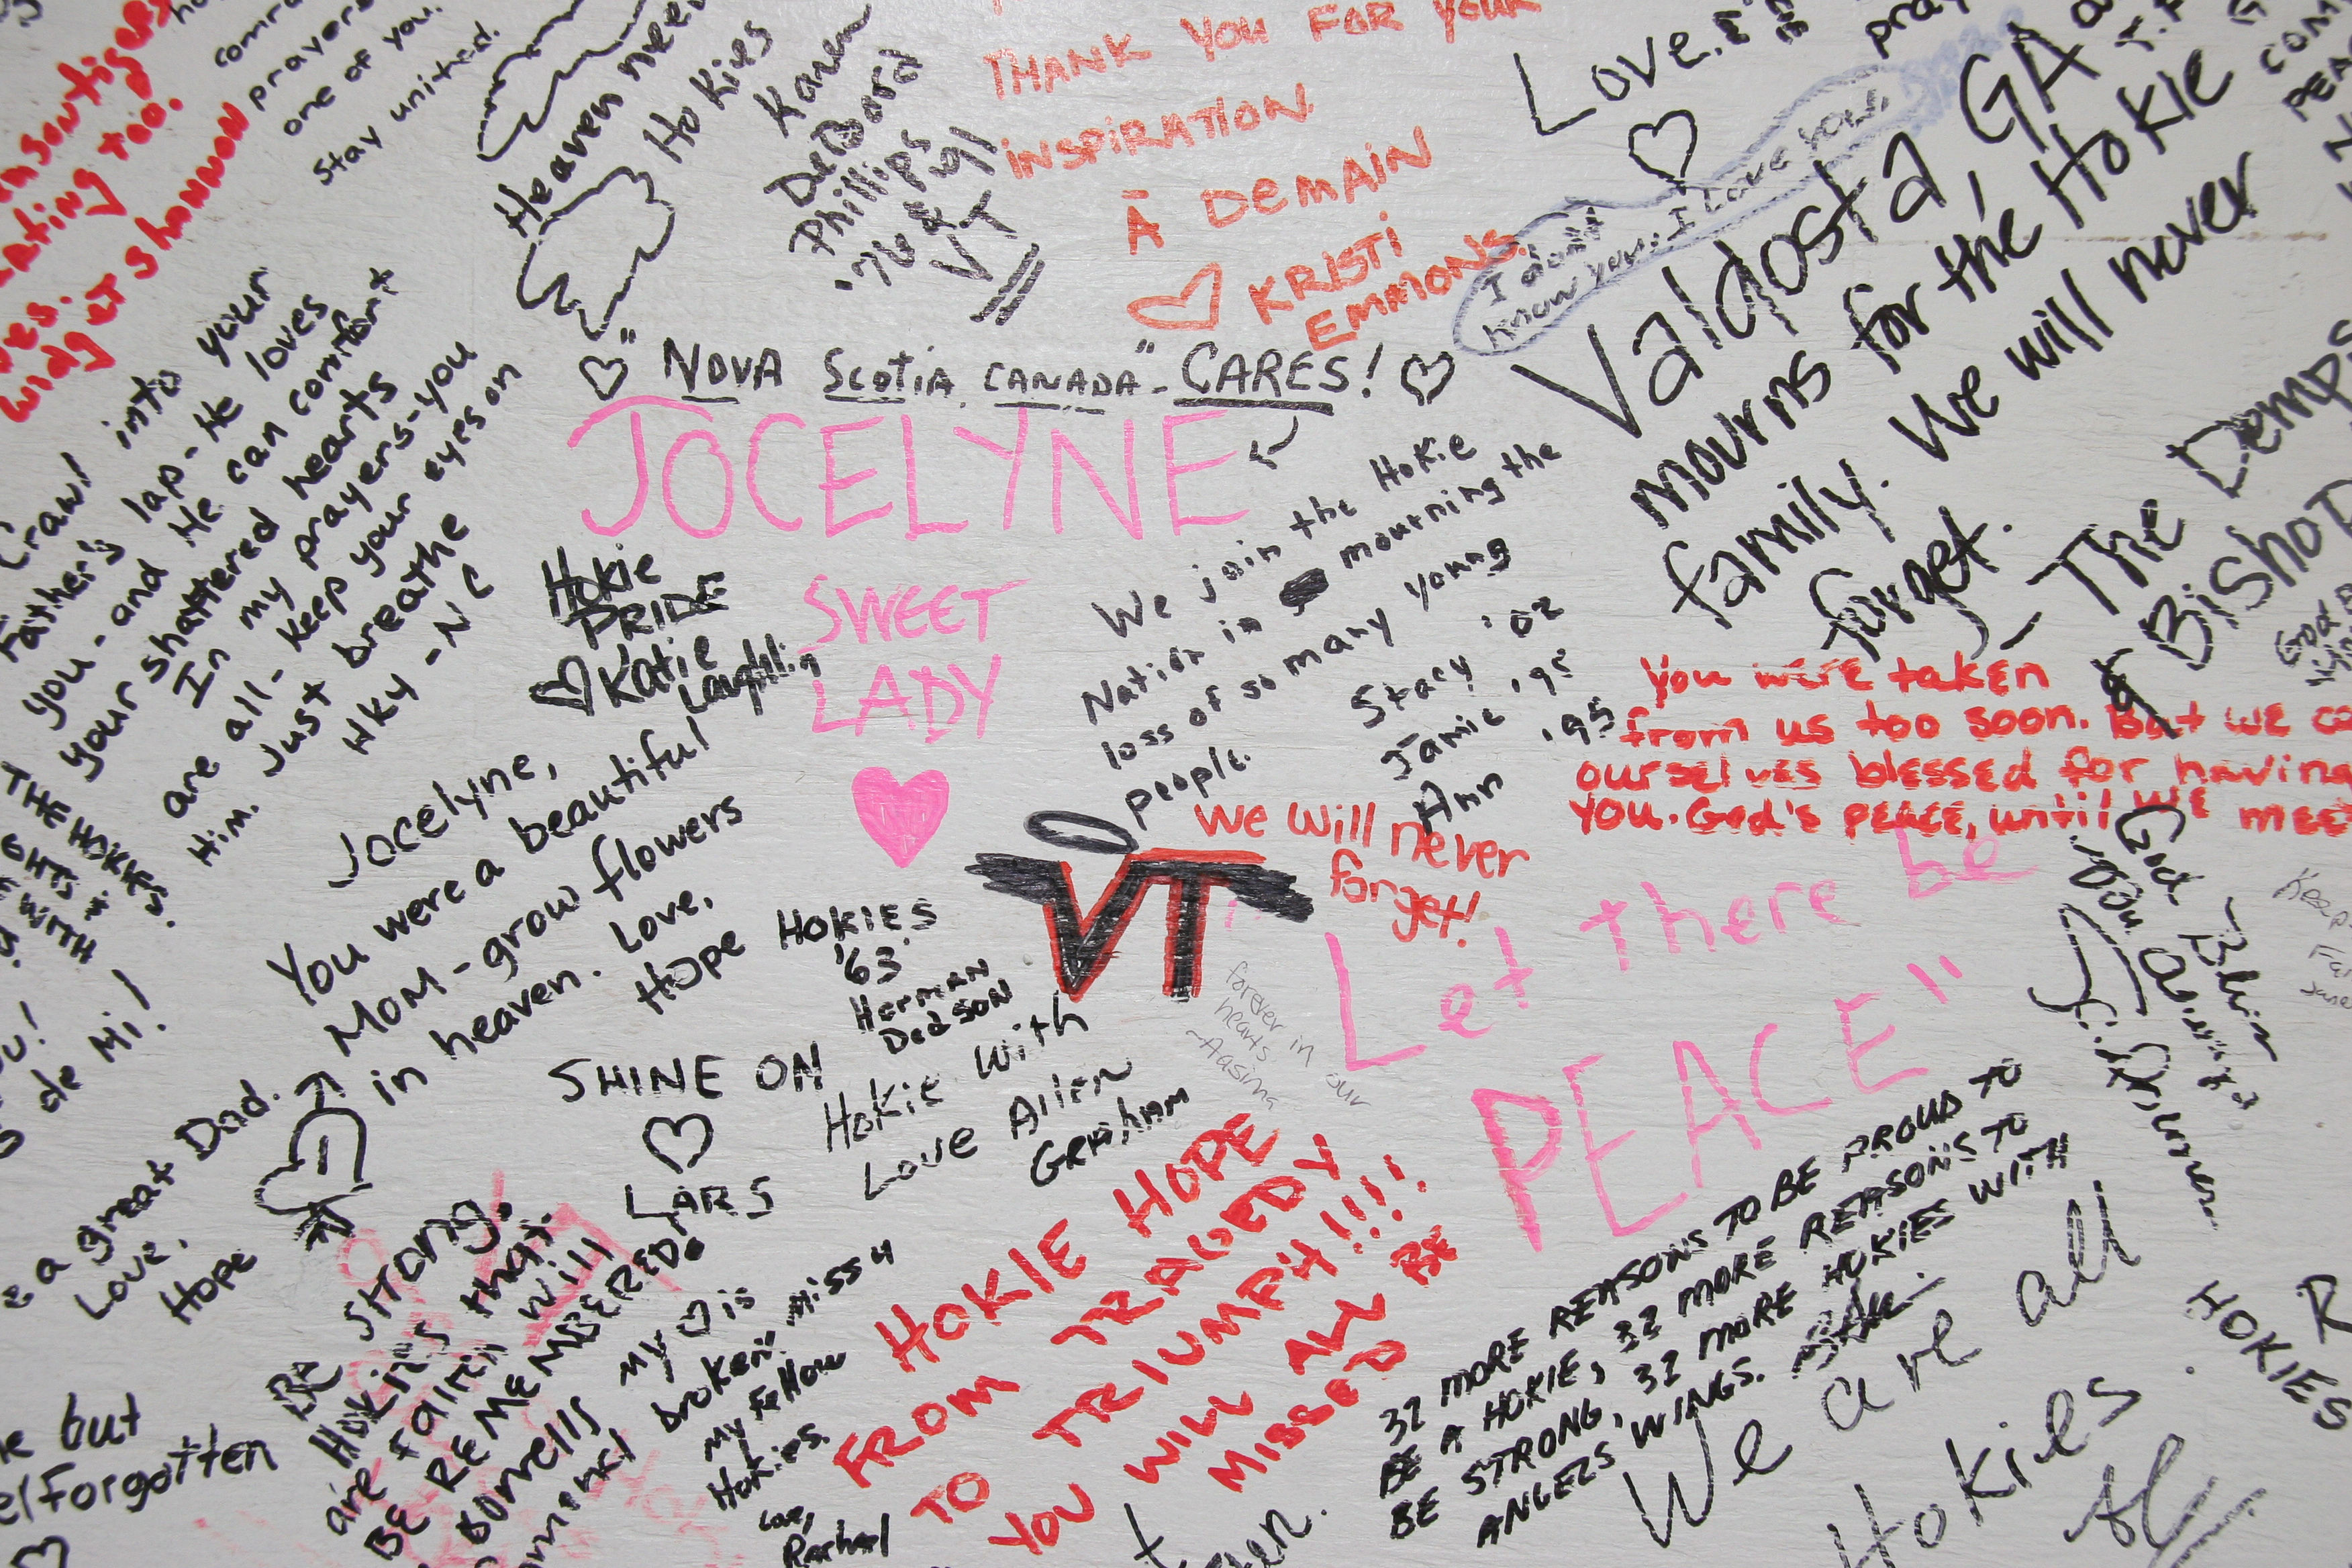 comfort
prayers
one of you.
Stay united.
too.
widget shannon
Heaven needed
Hokies
Karen
DeBord
Phillips
'76 & '91
VT
THANK YOU FOR YOUR
INSPIRATION.
À DEMAIN
KRISTI
EMMONS.
Love,
I don't
know you, I love you.
Valdosta, GA
mourns for the Hokie
family. We will never
forget.
The Demps
"NOVA SCOTIA, CANADA" - CARES!
JOCELYNE
SWEET
LADY
Crawl into your
Father's lap - He loves
you - and He can comfort
your shattered hearts
In my prayers - you
are all - keep your eyes on
Him. Just breathe
Hky - NC
Hokie
PRIDE
Katie
Laughlin
We join the Hokie
Nation in mourning the
loss of so many young
people.
Stacy '02
Jamie '95
Ann '95
You were taken
from us too soon. But we co
ourselves blessed for having
you. God's peace, until we meet
Jocelyne,
You were a beautiful
Mom - grow flowers
in heaven. Love,
Hope
HOKIES
'63
Herman
Dodson
VT
We will never
forget!
"Let there be
PEACE"
forever in our
hearts
~Aasina
SHINE ON
LARS
Hokie with
Love Allen
Graham
de Mi!
e a great Dad.
Love,
Hope
Be strong.
Hokies that
are fallin will
BE REMEMBERED!
my ♡ is
broken. miss u
my fellow
Hokies.
Love,
Rachael
HOKIE HOPE
FROM TRAGEDY
TO TRIUMPH!!!!
YOU WILL ALL BE
MISSED
32 MORE REASONS TO BE PROUD TO
BE A HOKIE, 32 MORE REASONS TO
BE STRONG, 32 MORE HOKIES WITH
ANGELS' WINGS.
We are all
Hokies.
God Bless
HOKIES
but
Forgotten